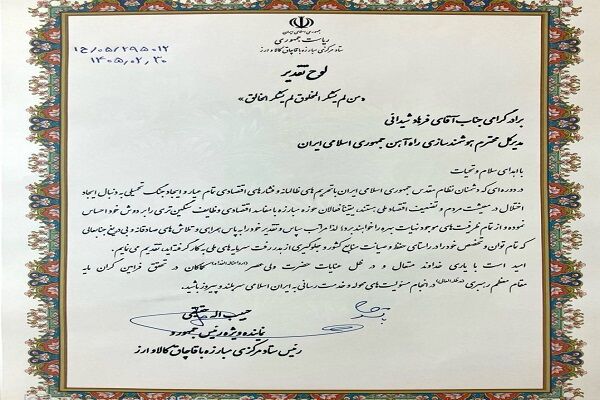 جمهوری اسلامی ایران
ریاست جمهوری
ستاد مرکزی مبارزه با قاچاق کالا و ارز
۱۴۰۵/۰۲/۲۰
لوح تقدیر
«من لم یشکر المخلوق لم یشکر الخالق»
برادر گرامی جناب آقای فرهاد شیدائی
مدیر کل محترم هوشمندسازی راه آهن جمهوری اسلامی ایران
با اهدای سلام و تحیات
در دوره‌ای که دشمنان نظام مقدس جمهوری اسلامی ایران با تحریم های ظالمانه و فشارهای اقتصادی تمام عیار و ایجاد جنگ تحمیلی به دنبال ایجاد
اختلال در معیشت مردم و تضعیف اقتصاد ملی هستند، یقینا فعالان حوزه مبارزه با مفاسد اقتصادی وظایف سنگین تری را بر دوش خود احساس
نموده و از تمام ظرفیت های موجود نهایت بهره را خواهند برد؛ لذا مراتب سپاس و تقدیر خود را به پاس همراهی و تلاش های صادقانه و بی دریغ جنابعالی
که تمام توان و تخصص خود را در راستای حفظ و صیانت منابع کشور و جلوگیری از هدر رفت سرمایه های ملی به کار گرفته‌اید، تقدیم می نمایم.
امید است با یاری خداوند متعال و در ظل عنایات حضرت ولی عصر کماکان در تحقق فرامین گران مایه
مقام معظم رهبری (مدظله العالی) در انجام مسئولیت های محوله و خدمت رسانی به ایران اسلامی سربلند و پیروز باشید.
حبیب اله حقیقی
نماینده ویژه رئیس جمهور و
رئیس ستاد مرکزی مبارزه با قاچاق کالا و ارز